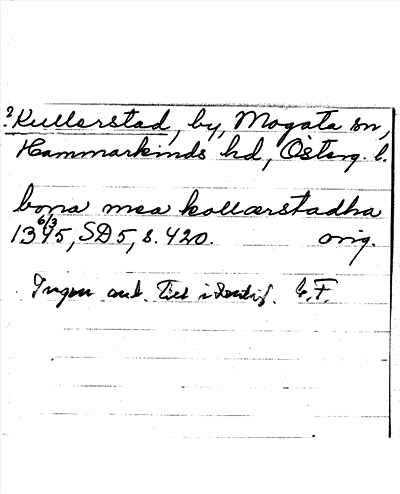 ? Kullerstad, by, Mogata sn,
Hammarkinds hd, Österg. l.
bona mea kollærstadha
6/3
1345, SD 5, s. 420. orig.
Ingen ant. till identif. G.F.